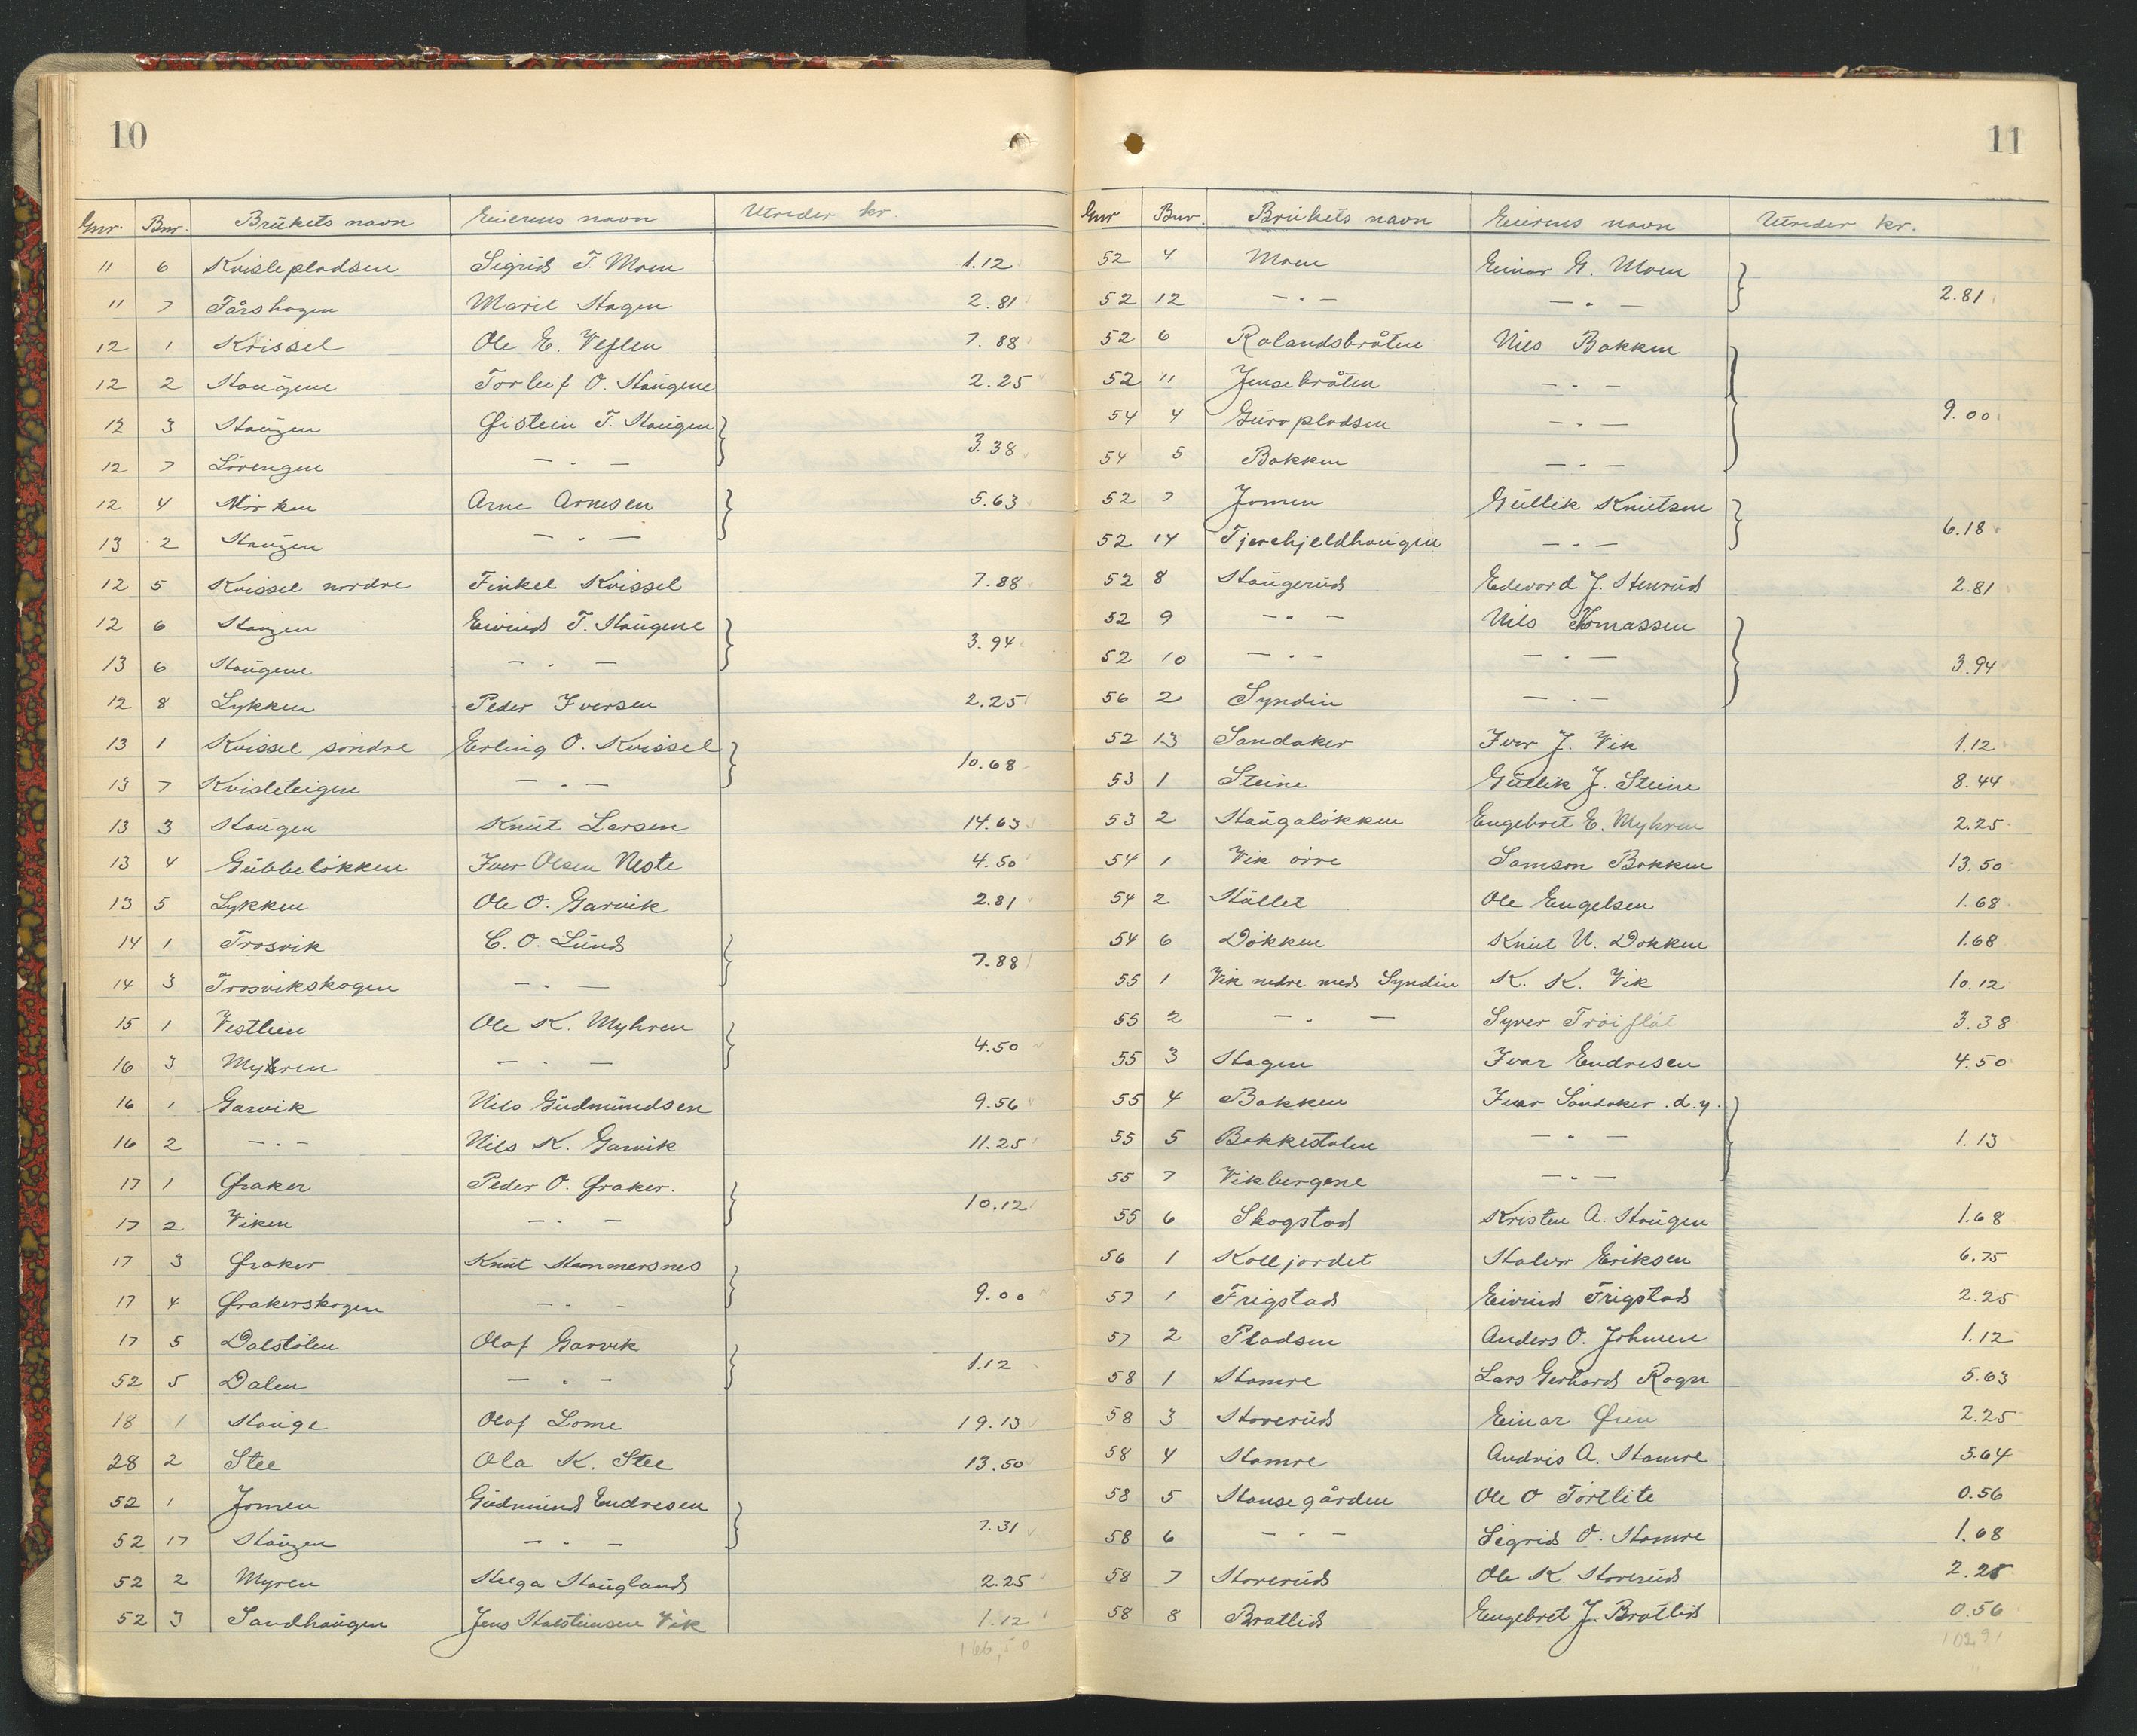 10
Gnr. Bnr. Brükets navn Eierens navn Utreder kr.
11 6 Kvislepladsen Sigrid T. Moen 1.12
11 7 Tårshagen Marit Hagen 2.81
12 1 Kvissel Ole E. Veflen 7.88
12 2 Haugene Torleif O. Haugene 2.25
12 3 Haugen Øistein T. Haugen
3.38
12 7 Lövengen — " —
12 4 Mörken Arne Arnesen 5.63
13 2 Haugen — " —
12 5 Kvissel nordre Finkel Kvissel 7.88
12 6 Haugen Eivind T. Haugene
3.94
13 6 Haugene — " —
12 8 Lykken Peder Iversen 2.25
13 1 Kvissel söndre Erling O. Kvissel
10.68
13 7 Kvisleteigen — " —
13 3 Haugen Knut Larsen 14.63
13 4 Gubbelökken Iver Olsen Neste 4.50
13 5 Lykken Ole O. Garvik 2.81
14 1 Trosvik C. O. Lund
7.88
14 3 Trosvikskogen — " —
15 1 Vestlien Ole K. Myhren
4.50
16 3 Myhren — " —
16 1 Garvik Nils Gudmundsen 9.56
16 2 — " — Nils K. Garvik 11.25
17 1 Øraker Peder O. Øraker.
10.12
17 2 Viken — " —
17 3 Øraker Knut Hammersnes
9.00
17 4 Ørakerskogen — " —
17 5 Dalstölen Olaf Garvik
1.12
52 5 Dalen — " —
18 1 Hauge Olaf Lome 19.13
28 2 Stee Ola K. Stee 13.50
52 1 Jomen Gudmund Endresen
7.31
52 17 Haugen — " —
52 2 Myren Helga Haugland 2.25
52 3 Sandhaugen Jens Halsteinsen Vik 1.12
166,50
11
Gnr Bnr. Brükets navn Eierens navn Utreder kr.
52 4 Moen Einar G. Moen
2.81
52 12 — " — — " —
52 6 Rolandsbråten Nils Bakken
52 11 Jensebråten — " —
9.00
54 4 Guropladsen — " —
54 5 Bakken — " —
52 7 Jomen Gullik Knutsen
6.18
52 14 Tjerehjeldhaugen — " —
52 8 Haugerud Edevard J. Stenrud 2.81
52 9 — " — Nils Thomassen
52 10 — " — — " — 3.94
56 2 Syndin — " —
52 13 Sandaker Ivar J. Vik 1.12
53 1 Steine Gullik J. Steine 8.44
53 2 Haugalökken Engebret E. Myhren 2.25
54 1 Vik övre Samson Bakken 13.50
54 2 Hållet Ole Engelsen 1.68
54 6 Dökken Knut N. Dokken 1.68
55 1 Vik nedre med Syndin K. K. Vik 10.12
55 2 — " — Syver Tröiflåt 3.38
55 3 Hagen Ivar Endresen 4.50
55 4 Bakken Ivar Sandaker .d.y.
55 5 Bakkestölen — " — 1.13
55 7 Vikbergene — " —
55 6 Skogstad Kristen A. Haugen 1.68
56 1 Kolljordet Halvor Eriksen 6.75
57 1 Frigstad Eivind Frigstad 2.25
57 2 Pladsen Anders O. Johnsen 1.12
58 1 Hamre Lars Gerhard Rogn 5.63
58 3 Storerud Einar Øien 2.25
58 4 Hamre Andris A. Hamre 5.64
58 5 Hansegården Ole O. Tortlite 0.56
58 6 — " — Sigrid O. Hamre 1.68
58 7 Storerud Ole K. Storerud 2.25
58 8 Bratlid Engebret J. Bratlid 0.56
102 91